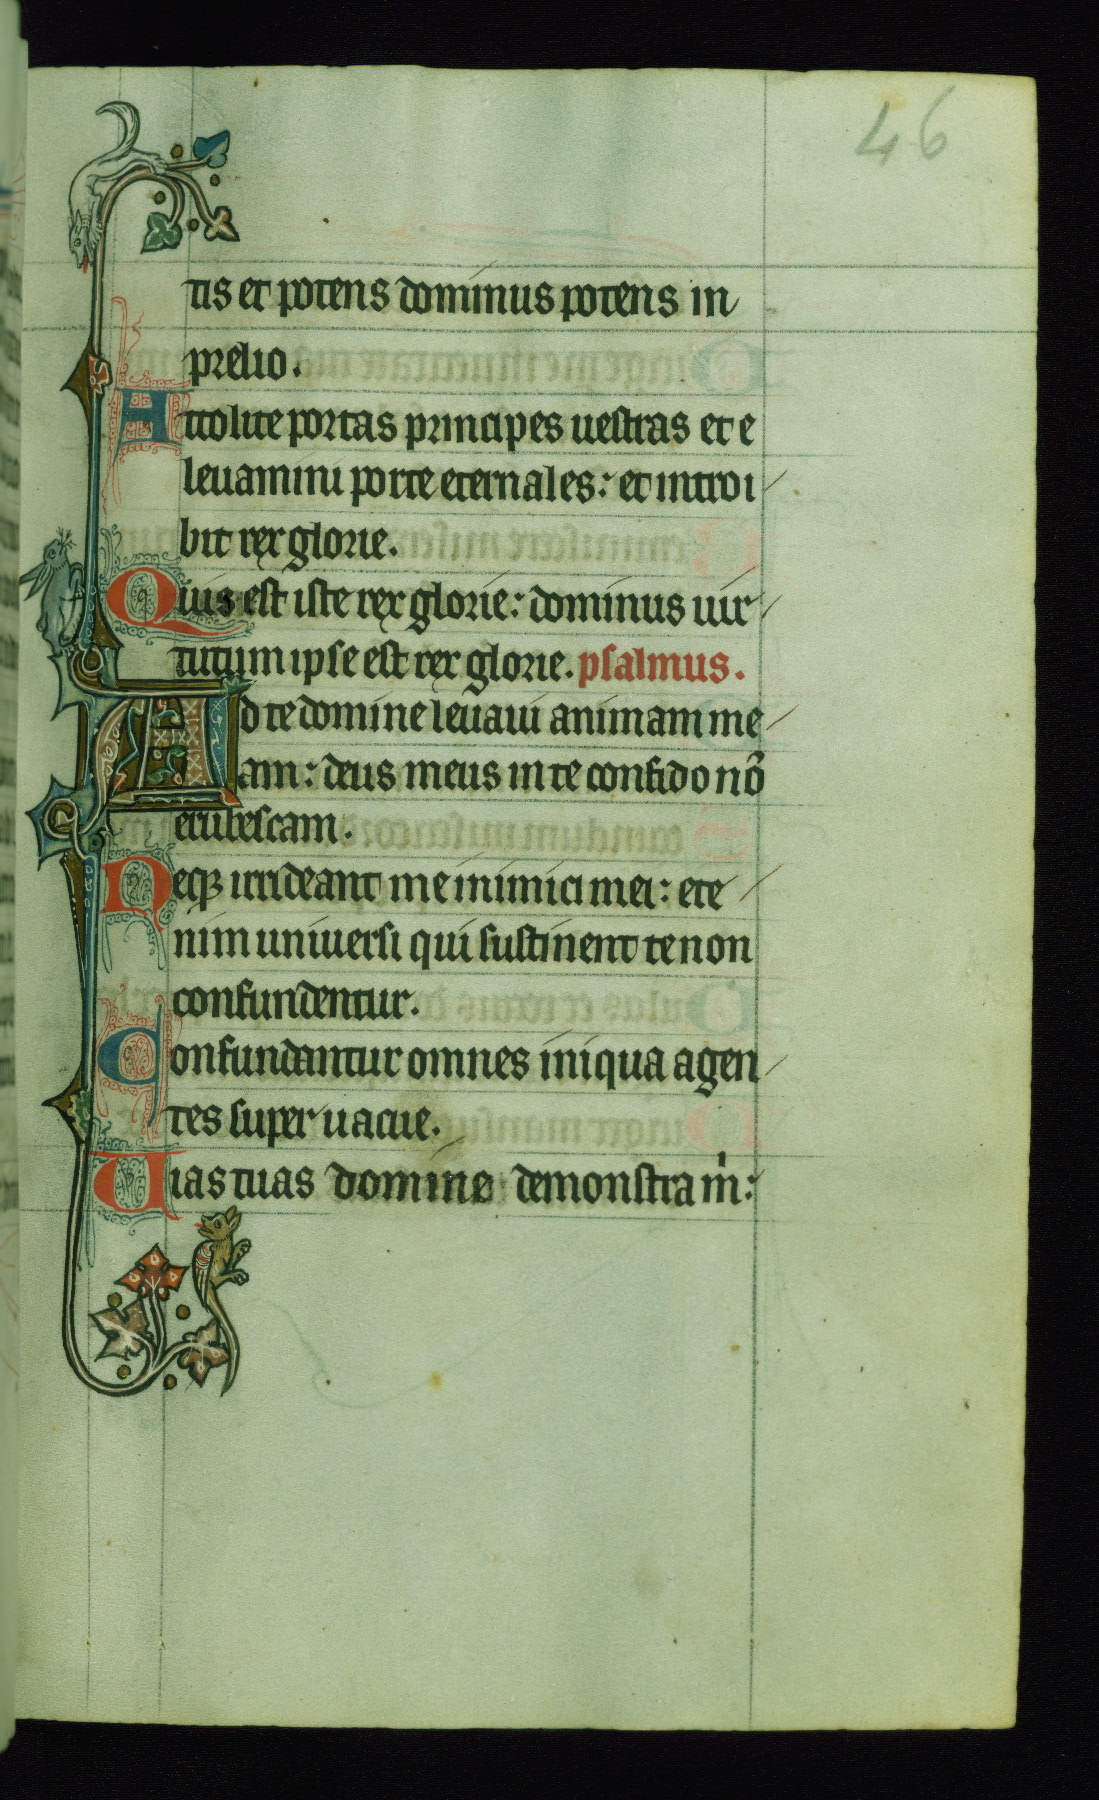 46
tis et potens dominus potens in
prelio.
Attolite portas principes uestras et e
leuamini porte eternales: et introi
bit rex glorie.
Quis est iste rex glorie: dominus uir
tutum ipse est rex glorie. psalmus.
Ad te domine leuaui animam me
am: deus meus in te confido nō
erubescam.
Neqꝫ irrideant me inimici mei: ete
nim uniuersi qui sustinent te non
confundentur.
Confundantur omnes iniqua agen
tes super uacue.
Uias tuas domine demonstra m̍: